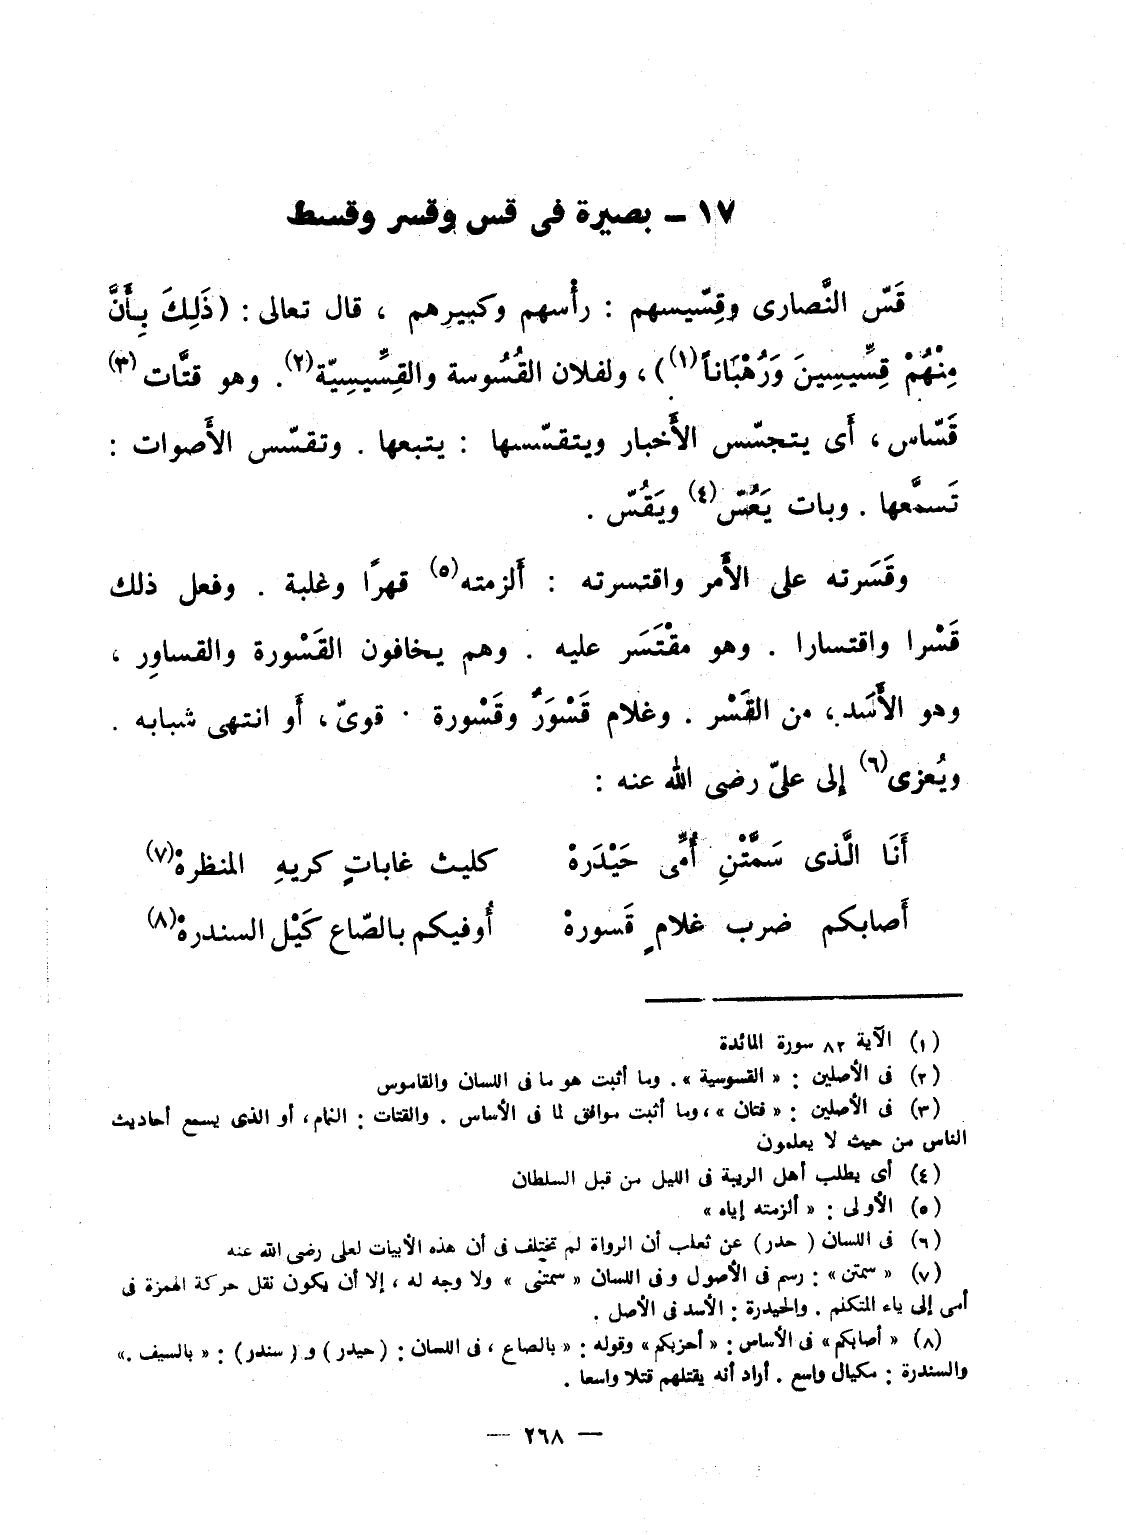 ١٧ – بصيرة فى قس وقسر وقسط
قَسّ النَّصارى وقِسّيسهم : رأْسهم وكبيرهم ، قال تعالى : (ذَلِكَ بِأَنَّ
مِنْهُمْ قِسِّيسِينَ وَرُهْبَاناً(١)) ، ولفلان القُسُوسة والقِسِّيسِيّة(٢). وهو قتَّات(٣)
قَسّاس ، أَى يتجسّس الأَخبار ويتقسّسها : يتبعها . وتقسّس الأَصوات :
تَسمَّعها . وبات يَعُسّ(٤) ويَقُسّ .
وقَسَرته على الأَمر واقتسرته : أَلزمته(٥) قهرًا وغلبة . وفعل ذلك
قَسْرا واقتسارا . وهو مقْتَسَر عليه . وهم يخافون القَسْورة والقساوِر ،
وهو الأَسَد ، من القَسْر . وغلام قَسْوَرٌ وقَسْورة . قوىّ ، أَو انتهى شبابه .
ويُعزى(٦) إلى علىّ رضى الله عنه :
أَنَا الَّذى سَمَّتْنِ أُمِّى حَيْدَرهْ كليث غاباتٍ كريهِ المنظرهْ(٧)
أَصابكم ضرب غلامٍ قَسورهْ أُوفيكم بالصّاع كَيْل السندرهْ(٨)
(١) الآية ٨٢ سورة المائدة
(٢) فى الأصلين : « القسوسية » . وما أثبت هو ما فى اللسان والقاموس
(٣) فى الأصلين : « فتان » ، وما أثبت موافق لما فى الأساس . والقتات : النمام ، أو الذى يسمع أحاديث
الناس من حيث لا يعلمون
(٤) أى يطلب أهل الريبة فى الليل من قبل السلطان
(٥) الأولى : « ألزمته إياه »
(٦) فى اللسان ( حدر ) عن ثعلب أن الرواة لم تختلف فى أن هذه الأبيات لعلى رضى الله عنه
(٧) « سمتن » : رسم فى الأصول وفى اللسان « سمتنى » ولا وجه له ، إلا أن يكون نقل حركة الهمزة فى
أمى إلى ياء المتكلم . والحيدرة : الأسد فى الأصل .
(٨) « أصابكم » فى الأساس : « أحزبكم » وقوله : « بالصاع ، فى اللسان : ( حيدر ) و ( سندر ) : « بالسيف . »
والسندرة : مكيال واسع . أراد أنه يقتلهم قتلا واسعا .
— ٢٦٨ —